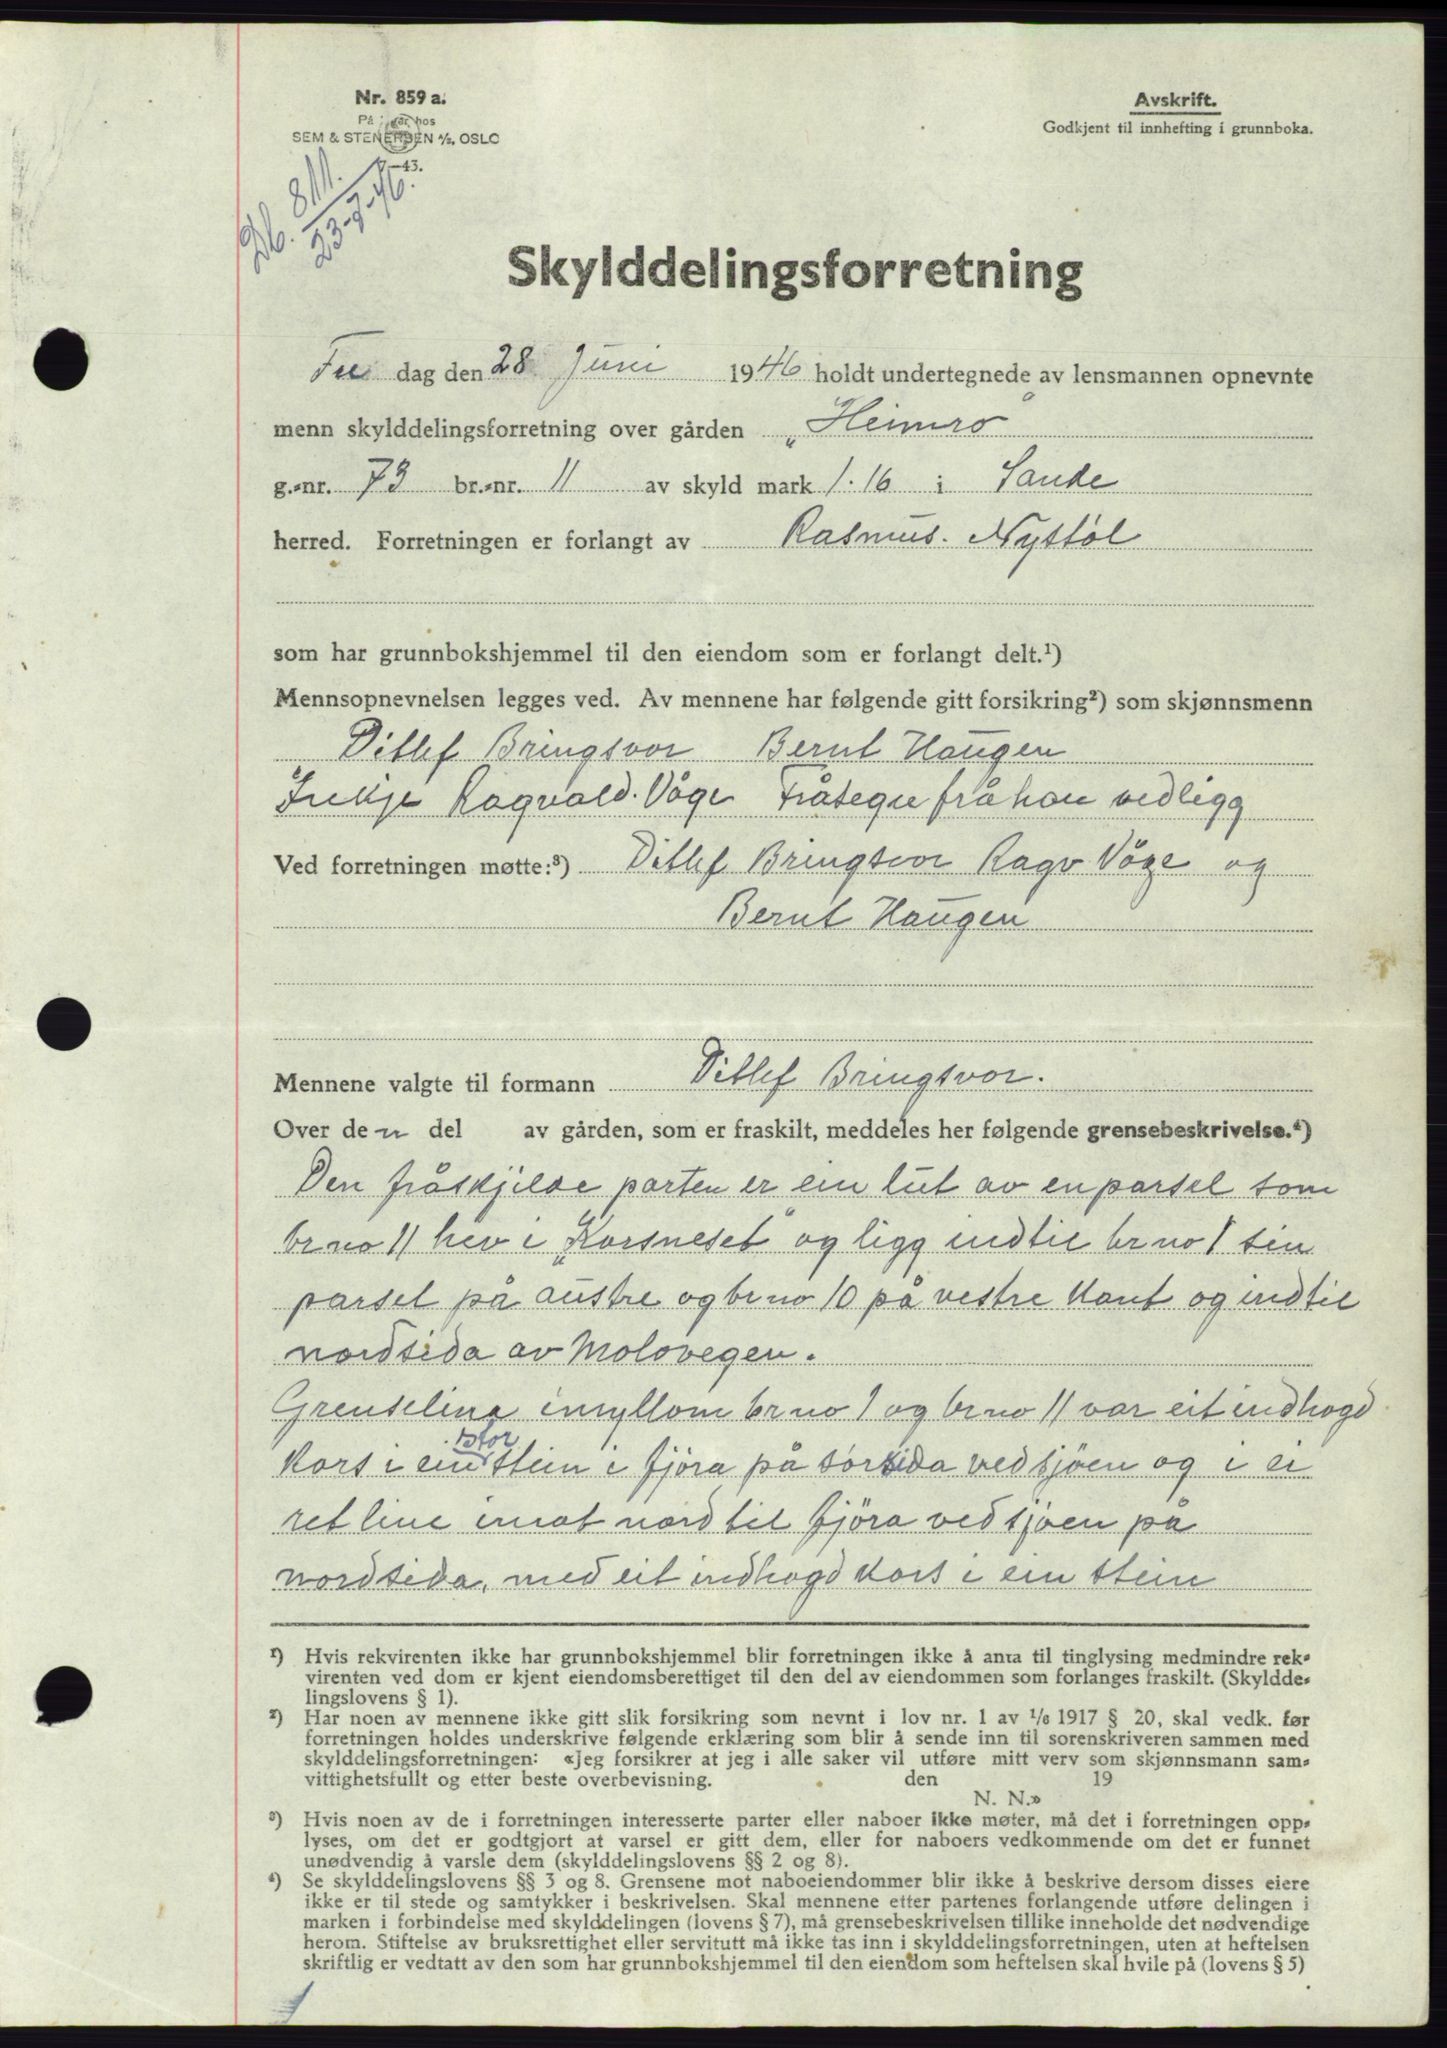 Nr. 859 a.
På lager hos
SEM & STENERSEN A/S, OSLO
7—43.
Avskrift.
Godkjent til innhefting i grunnboka.
Db. 811.
23-7-46.
Skylddelingsforretning
Fre dag den 28 Juni 1946 holdt undertegnede av lensmannen opnevnte
menn skylddelingsforretning over gården „Heimro"
g.-nr. 73 br.-nr. 11 av skyld mark 1.16 i Sande
herred. Forretningen er forlangt av Rasmus. Nystöl
som har grunnbokshjemmel til den eiendom som er forlangt delt.¹)
Mennsopnevnelsen legges ved. Av mennene har følgende gitt forsikring²) som skjønnsmenn
Ditlef Bringsvor Bernt Haugen
Ikkje Ragvald. Våge Fråsegn frå han vedligg
Ved forretningen møtte:³) Ditlef Bringsvor Ragv Våge og
Bernt Haugen
Mennene valgte til formann Ditlef Bringsvor.
Over den del av gården, som er fraskilt, meddeles her følgende grensebeskrivelse.⁴)
Den fråskjilde parten er ein lut av en parsel som
br no 11 hev i „Korsneset" og ligg indtil br no 1 sin
parsel på austre og br no 10 på vestre kant og indtil
nordsida av Molovegen.
Grenselina imyllom br no 1 og br no 11 var eit indhogd
kors i ein stor stein i fjöra på sörsida ved sjöen og i ei
ret line imot nord til fjöra ved sjöen på
nordsida, med eit indhogd kors i ein stein
¹) Hvis rekvirenten ikke har grunnbokshjemmel blir forretningen ikke å anta til tinglysing medmindre rek-
virenten ved dom er kjent eiendomsberettiget til den del av eiendommen som forlanges fraskilt. (Skyldde-
lingslovens § 1).
²) Har noen av mennene ikke gitt slik forsikring som nevnt i lov nr. 1 av 1/6 1917 § 20, skal vedk. før
forretningen holdes underskrive følgende erklæring som blir å sende inn til sorenskriveren sammen med
skylddelingsforretningen: «Jeg forsikrer at jeg i alle saker vil utføre mitt verv som skjønnsmann sam-
vittighetsfullt og etter beste overbevisning. den 19
N. N.»
³) Hvis noen av de i forretningen interesserte parter eller naboer ikke møter, må det i forretningen opp-
lyses, om det er godtgjort at varsel er gitt dem, eller for naboers vedkommende om det er funnet
unødvendig å varsle dem (skylddelingslovens §§ 2 og 8).
⁴) Se skylddelingslovens §§ 3 og 8. Grensene mot naboeiendommer blir ikke å beskrive dersom disses eiere
ikke er til stede og samtykker i beskrivelsen. Skal mennene etter partenes forlangende utføre delingen i
marken i forbindelse med skylddelingen (lovens § 7), må grensebeskrivelsen tillike inneholde det nødvendige
herom. Stiftelse av bruksrettighet eller servitutt må ikke tas inn i skylddelingsforretningen, uten at heftelsen
skriftlig er vedtatt av den som har grunnbokshjemmel til den eiendom som heftelsen skal hvile på (lovens § 5)